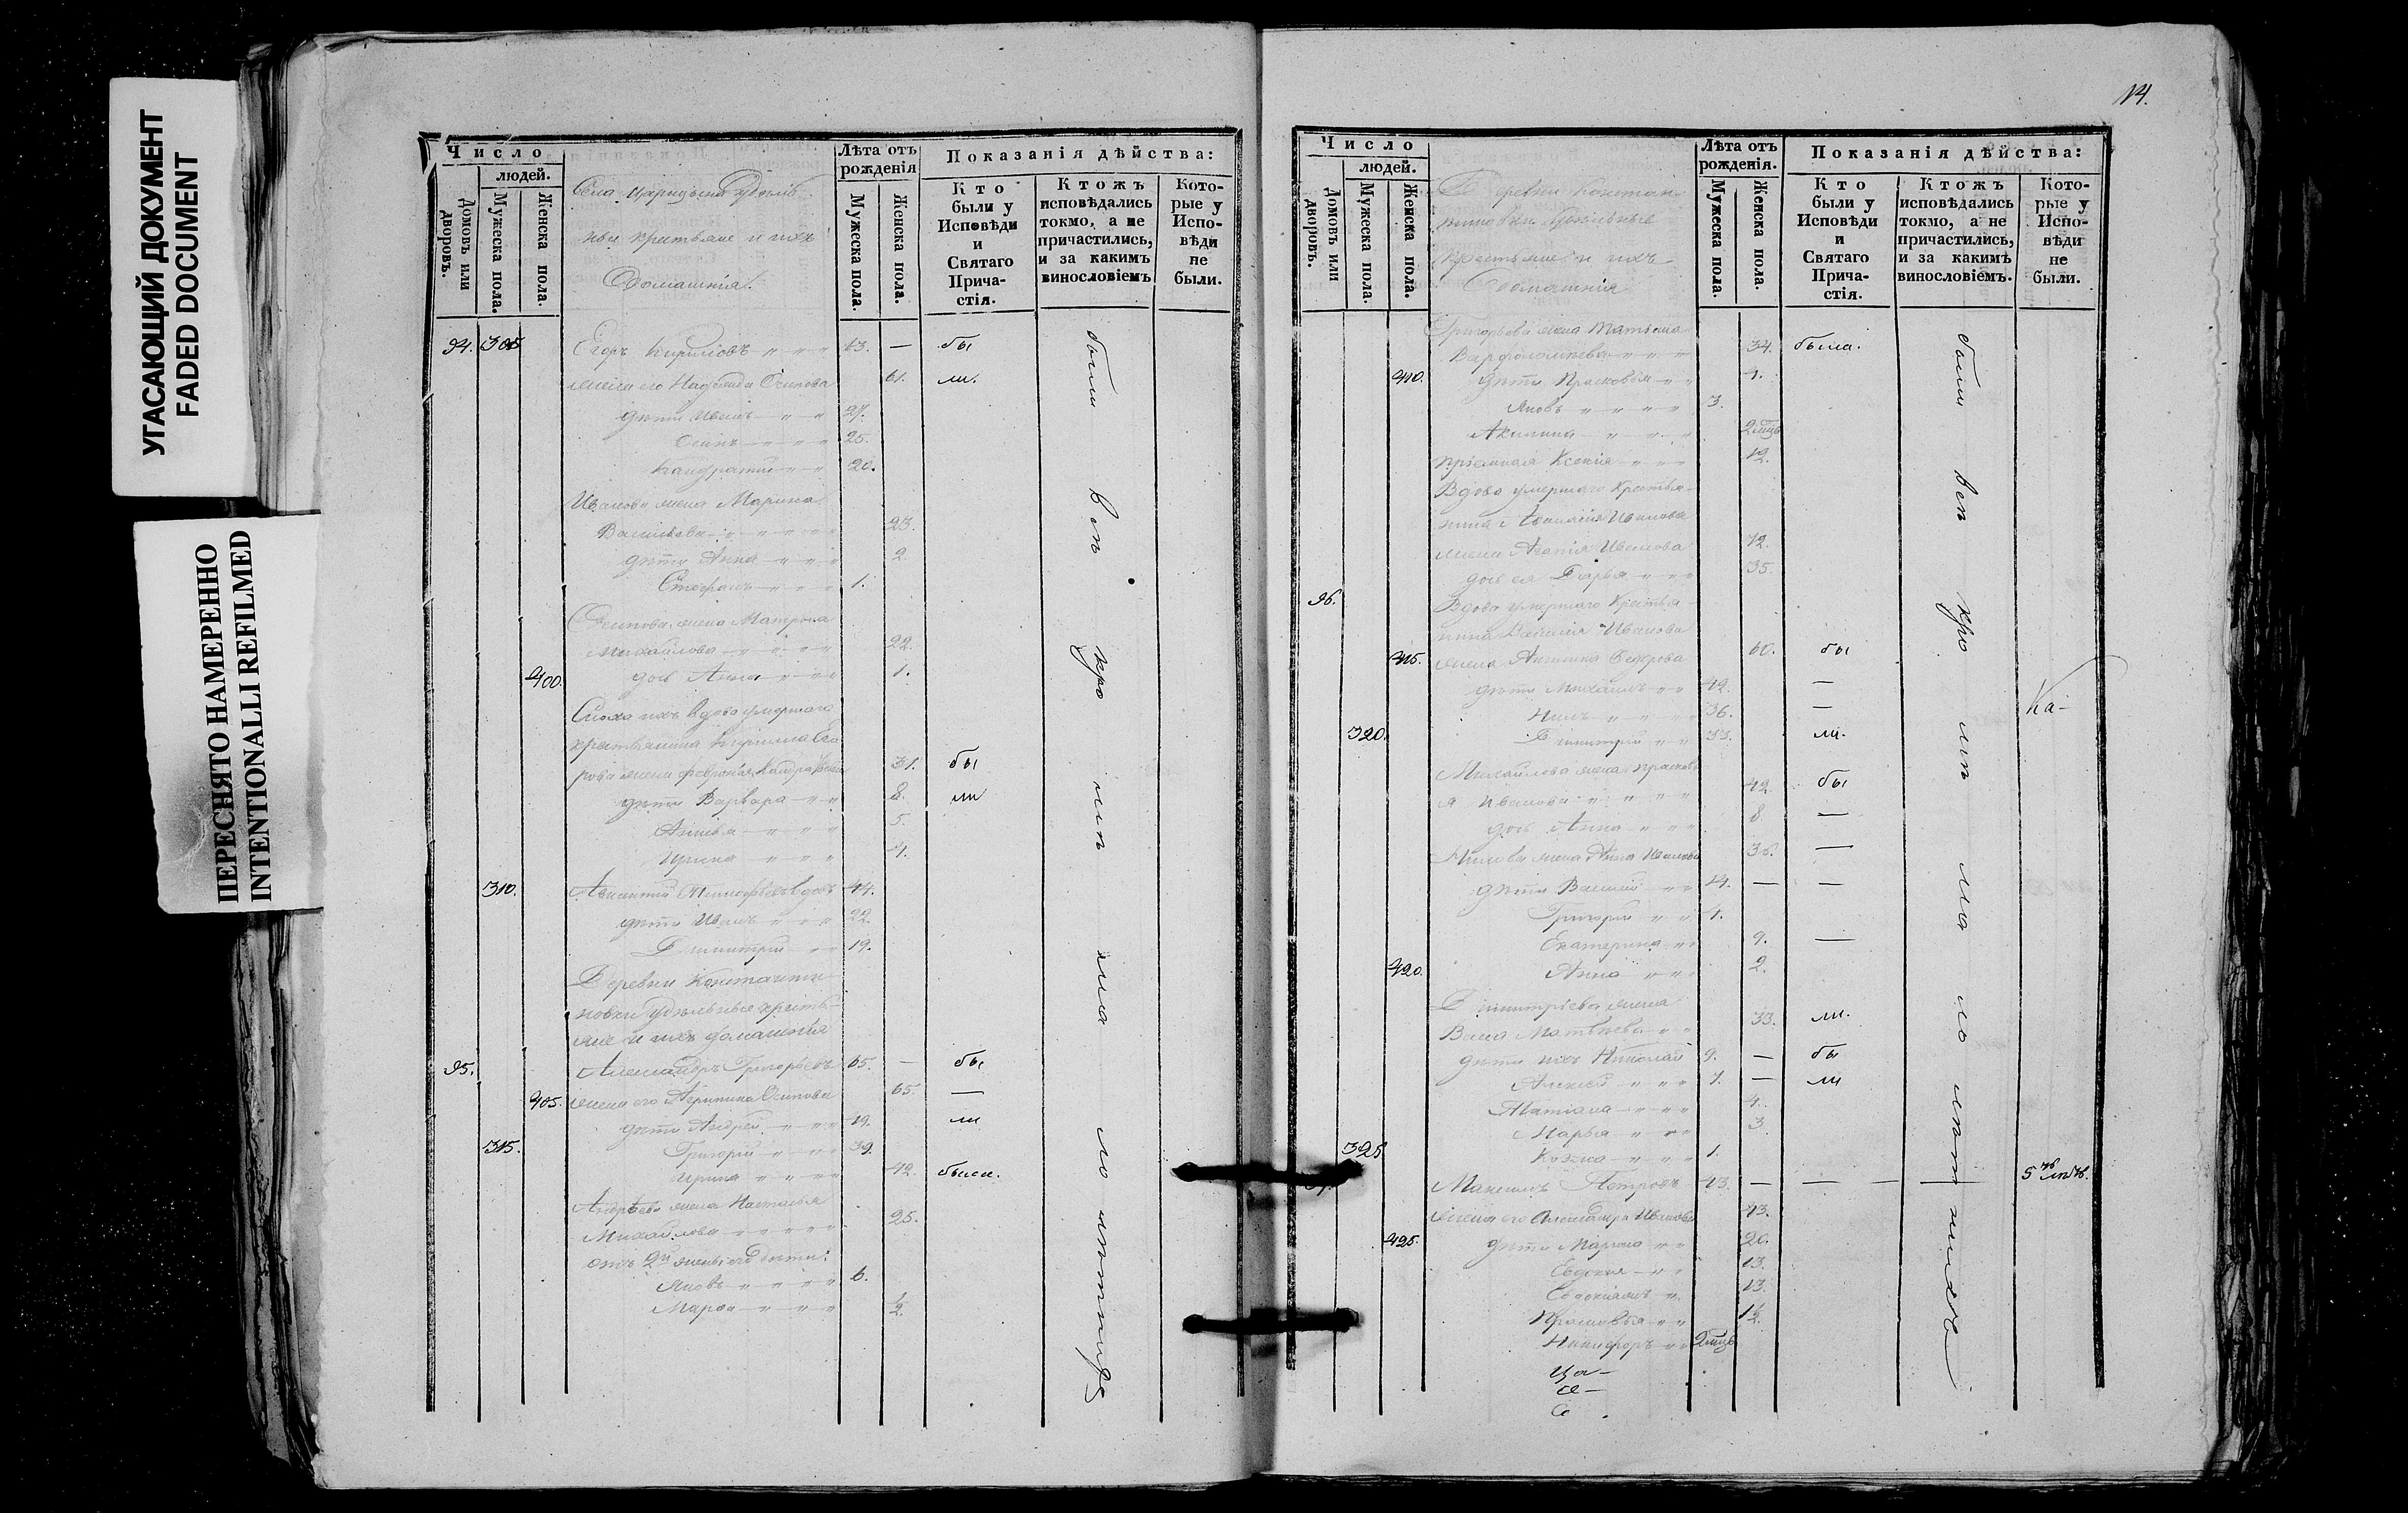 УГАСАЮЩИЙ ДОКУМЕНТ
FADED DOCUMENT
ПЕРЕСНЯТО НАМЕРЕННО
INTENTIONALLI REFILMED
Число
людей.
Домовъ или дворовъ.
Мужеска пола.
Женска пола.
Лѣта отъ рожденія
Мужеска пола.
Женска пола.
Показанія дѣйства:
Кто были у Исповѣди и Святаго Причастія.
Ктожъ исповѣдались токмо, а не причастились, и за какимъ винословіемъ
Которые у Исповѣди не были.
Села удѣль-
ные крестьяне и ихъ
Домашнія.
94. 305 Егоръ Кириловъ 63. — бы
жена его Надежда Осипова 61. ли.
дѣти Иванъ 27.
Осипъ 25.
Кандратій 20.
Иванова жена Марина
Васильева 23.
дѣти Анна 2
Стефанъ 1.
Осипова жена Матрона
Михайлова 22.
400. дочь Анна 1.
Сноха ихъ вдова умершаго
крестьянина Кирилла Его
рова жена 31. бы
дѣти Варвара 8. ли
5.
Ирина 4.
310. вдовъ 44.
дѣти Иванъ 22.
Димитрій 19.
Деревни Константи-
новки удѣльные кресть-
яне и ихъ домашнія
95. Александръ Григорьевъ 65. — бы
405. жена его Осипова 65. —
дѣти Андрей 49. ли
315. Григорій 39.
Ирина 42. были.
Андреева жена Наталья
Михайлова 25.
отъ 2й жены его дѣти:
Яковъ 6.
Марѳа ½
были всѣ кромѣ малолѣтнихъ
14.
Число
людей.
Домовъ или дворовъ.
Мужеска пола.
Женска пола.
Лѣта отъ рожденія.
Мужеска пола.
Женска пола.
Показанія дѣйства:
Кто были у Исповѣди и Святаго Причастія.
Ктожъ исповѣдались токмо, а не причастились, и за какимъ винословіемъ.
Которые у Исповѣди не были.
Деревни Констан-
тиновки удѣльные
крестьяне и ихъ
Домашнія
Григорьева жена Татьяна
Варфоломѣева 34. была.
410. дѣти Прасковья
Яковъ 3.
Акилина 2 мѣцъ
пріемная Ксенія 12.
Вдова умершаго крестья-
нина Иванова
жена Иванова 72.
дочь ея Дарья 35.
96. Вдова умершаго крестья-
нина Василія Иванова
415. жена 60. бы
дѣти Михаилъ 42. —
Нилъ 36. —
320. Димитрій 33. ли.
Михайлова жена Прасковь
я Иванова 42. бы
дочь Анна 8. —
Нилова жена Анна Иванова 36. —
дѣти Василій — —
Григорій 4.
Екатерина 9. —
420. Анна 2.
Димитріева жена
Васса Матвѣева 33. ли.
дѣти ихъ Николай 9. — бы
Алексѣй 7. — ли
Татіана 4.
Марья 3.
325 Козма 1.
Максимъ Петровъ 43. — — — —
жена его Александра Иванова 43.
425. дѣти Марина 20.
Евдокія 13.
13.
Прасковья 1½
Никифоръ 2 мѣцъ
были всѣ кромѣ малолѣтнихъ
Ка-